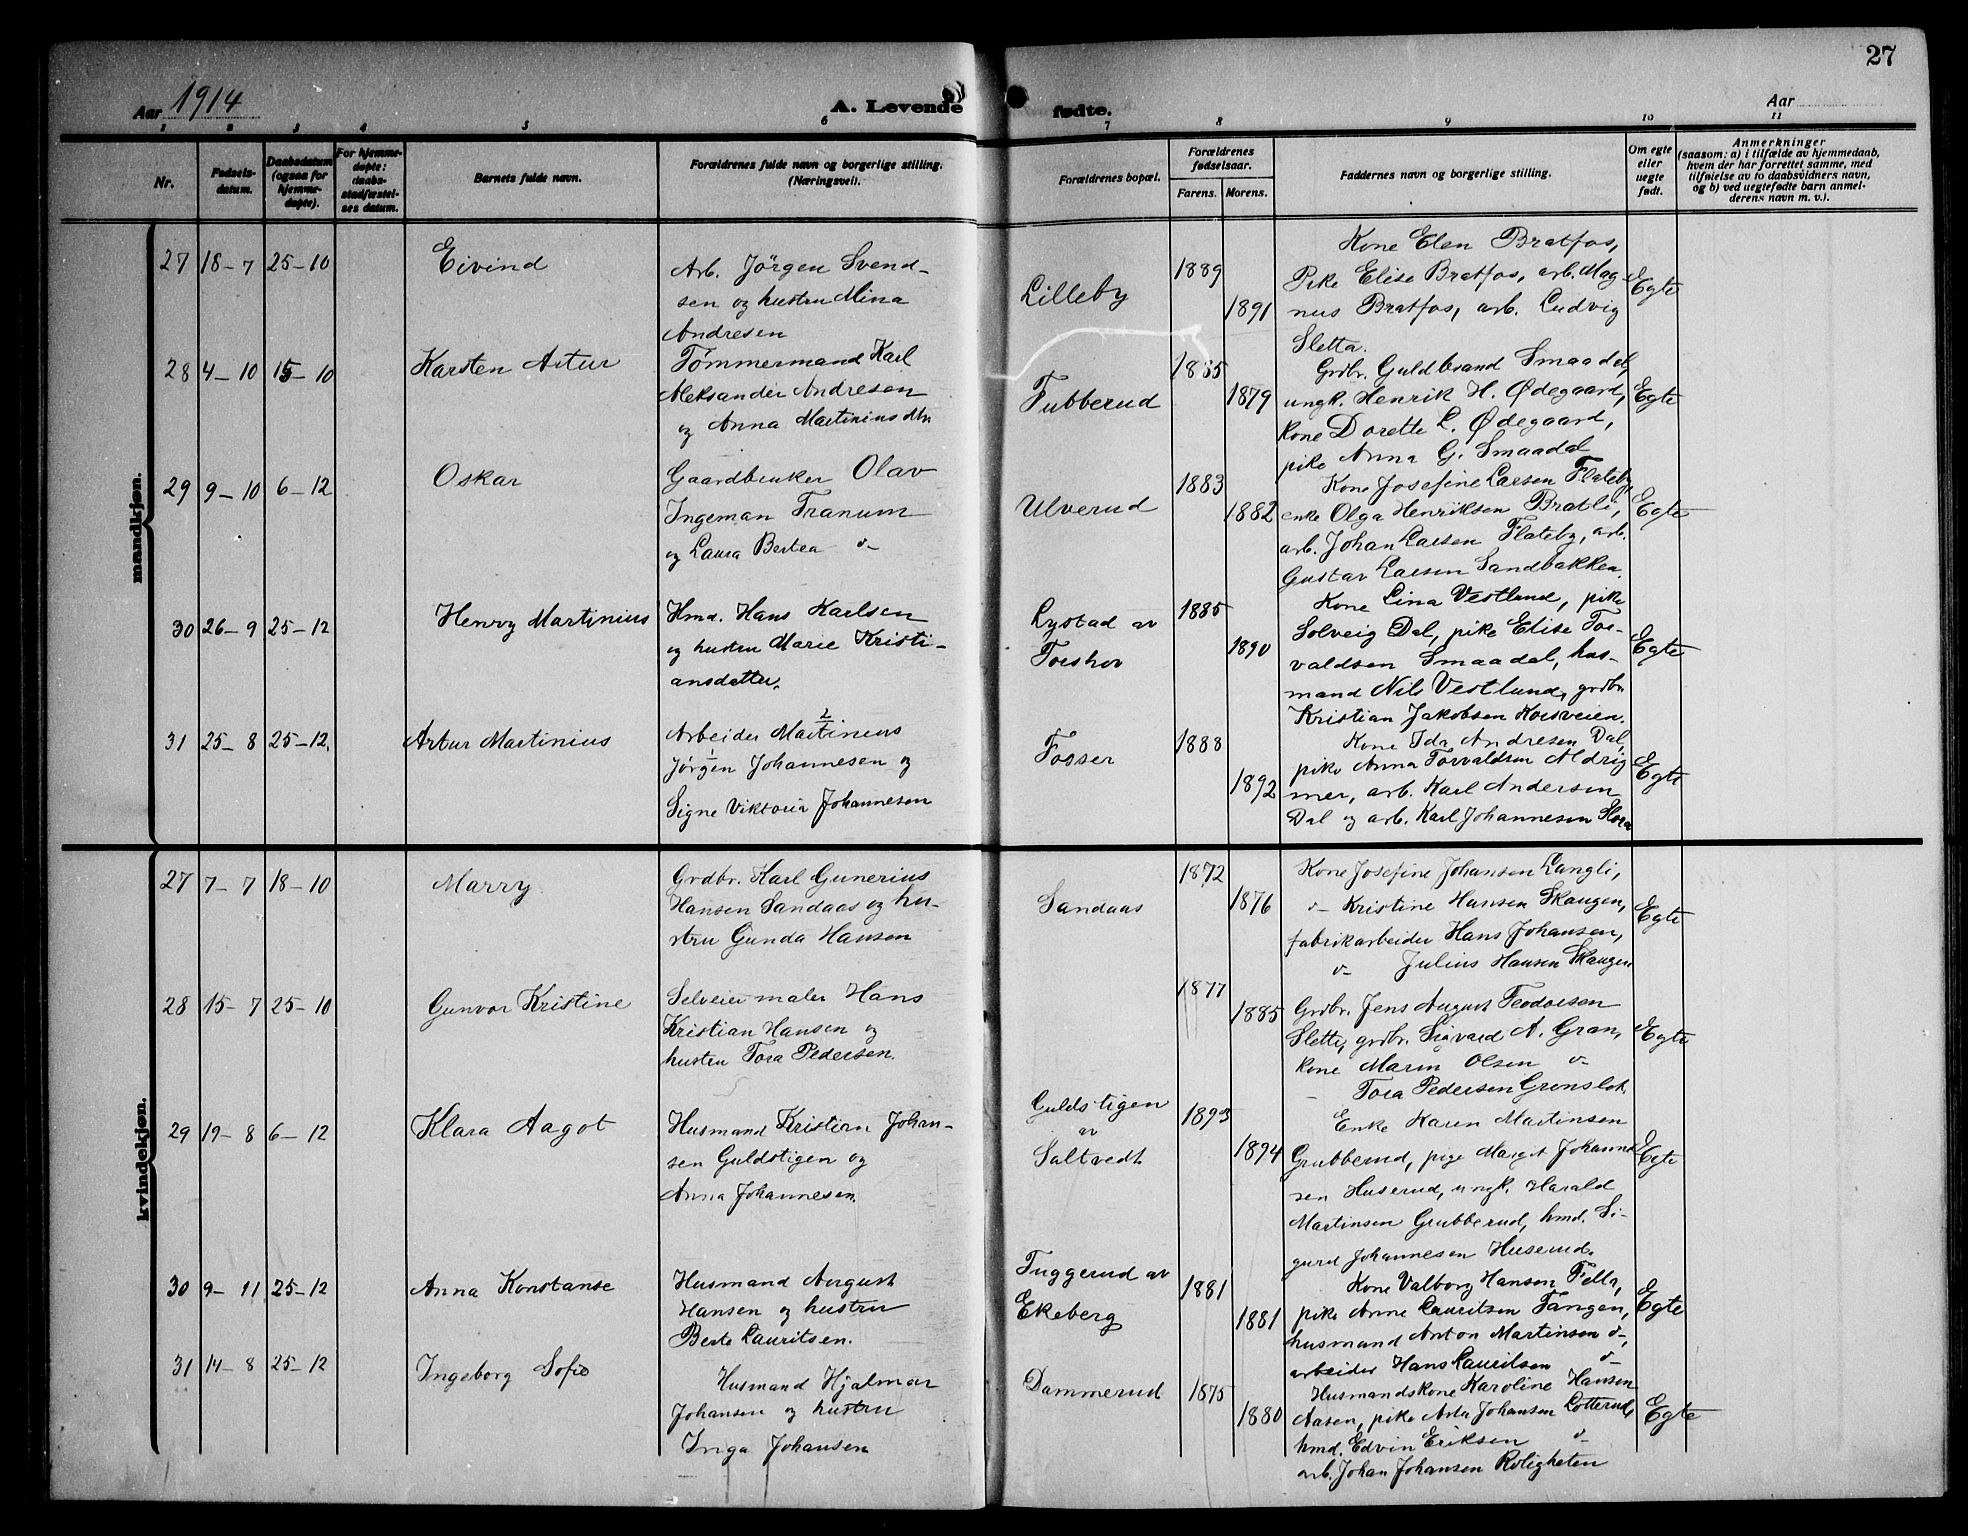 27
Aar 1914
A. Levende fødte.
Aar
1 2 3 4 5 6 7 8 9 10 11
Nr.
Fødsels-
datum.
Daabsdatum
(ogsaa for
hjemme-
døpte).
For hjemme-
døpte:
daabs-
stadfæstel-
ses datum.
Barnets fulde navn.
Forældrenes fulde navn og borgerlige stilling.
(Næringsvei).
Forældrenes bopæl.
Forældrenes
fødselsaar.
Farens. Morens.
Faddernes navn og borgerlige stilling.
Om egte
eller
uegte
født.
Anmerkninger
(saasom: a) i tilfælde av hjemmedaab,
hvem der har forrettet samme, med
tilføielse av to daabsvidners navn,
og b) ved uegtefødte barn anmel-
derens navn m. v.).
mandkjøn.
27 18-7 25-10 Eivind
Arb. Jörgen Svend-
sen og hustru Mina
Andresen
Lilleby 1889 1891
Kone Elen Bratfos,
Pike Elise Bratfos, arb. Mag-
nus Bratfos, arb. Ludvig
Sletta.
Egte
28 4-10 15-10 Karsten Artur
Tømmermand Karl
Aleksander Andresen
og Anna Martinius dtr.
Tubberud 1885 1879
Grdbr. Guldbrand Smaadal,
ungk. Henrik H. Ødegaard,
kone Dorette L. Ødegaard,
pike Anna G. Smaadal
Egte
29 9-10 6-12 Oskar
Gaardbruker Olav
Ingeman Tranum
og Laura Bertea d-
Ulverud 1883 1882
Kone Josefine Larsen Flateby,
enke Olga Henriksen Bratli,
arb. Johan Larsen Flateby, arb.
Gustav Larsen Sandbakken.
Egte
30 26-9 25-12 Henry Martinius
Hmd. Hans Karlsen
og hustru Marie Kristi-
ansdatter.
Lystad av
Toeshov
1885 1890
Kone Lina Vestlund, pike
Solveig Dal, pike Elise Tor-
valdsen Smaadal, hus-
mand Nils Vestlund, grdbr.
Kristian Jakobsen Korsveien.
Egte
31 25-8 25-12. Artur Martinius
2
Arbeider Martinius
1
Jørgen Johannesen og
Signe Viktoria Johannesen
Fosser 1888 1892
Kone Ida Andresen Dal,
pike Anna Torvaldsen Aldrig
mer, arb. Karl Andersen
Dal og arb. Karl Johannesen Flora
Egte
kvindekjøn.
27 7-7 18-10 Marry
Grdbr. Karl Gunerius
Hansen Sandaas og hu-
stru Gunda Hansen
Sandaas 1872 1876
Kone Josefine Johansen Langli,
d- Kristine Hansen Skaugen,
fabrikarbeider Hans Johansen,
d- Julius Hansen Skaugen
Egte
28 15-7 25-10 Gunvor Kristine
Selveier maler Hans
Kristian Hansen og
hustru Tora Pedersen.
1877 1885
Grdbr. Jens August Teodorsen
Slette, grdbr. Sigvard A. Gran,
kone Marin Olsen d-
- Tora Pedersen Grønslet.
Egte
29 19-8 6-12 Klara Aagot
Husmand Kristian Johan-
sen Guldstigen og
Anna Johannesen.
Guldstigen
av
Saltvedt
1893 1894
Enke Karen Martinsen
Grubberud, pige Margit Johanne
sen Huserud, ungk. Harald
Martinsen Grubberud, hmd. Si-
gurd Johannesen Huserud.
Egte
30 9-11 25-12 Anna Konstanse
Husmand August
Hansen og hustru
Berte Lauritsen.
Tuggerud av
Ekeberg
1881 1881
Kone Valborg Hansen Fella,
pike Anne Lauritsen Tangen,
husmand Anton Martinsen d-,
arbeider Hans Lauritsen d-
Egte
31 14-8 25-12 Ingeborg Sofie
Husmand Hjalmar
Johansen og hustru
Inga Johansen
Dammerud 1875 1880
Husmandskone Karoline Hansen
Aasen, pike Asta Johansen Lotterud,
hmd. Edvin Eriksen d-
arb. Johan Johansen Roligheten
Egte